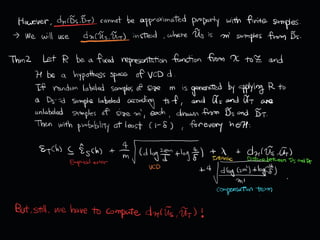 However, d_H(D̃_S, D̃_T) cannot be approximated property with finite samples.
→ We will use d_H(Ũ_S, Ũ_T) instead, where Ũ_S is m' samples from D̃_S.
Thm2 Let R be a fixed representation function from X to Z and
H be a hypothesis space of VCD d.
If random labeled samples of size m is generated by applying R to
a D_S-iid sample labeled according to f, and Ũ_S and Ũ_T are
unlabeled samples of size m' each, drawn from D̃_S and D̃_T.
Then with probability at least (1-δ), for every h∈H:
ε_T(h) ≤ ε̂_S(h) + 4/m √(d log 2em/d + log 4/δ) + λ + d_H(Ũ_S, Ũ_T)
Empirical error
VCD
+ 4 √((d log(2m') + log(4/δ))/m')
compensation term
But, still, we have to compute d_H(Ũ_S, Ũ_T)!